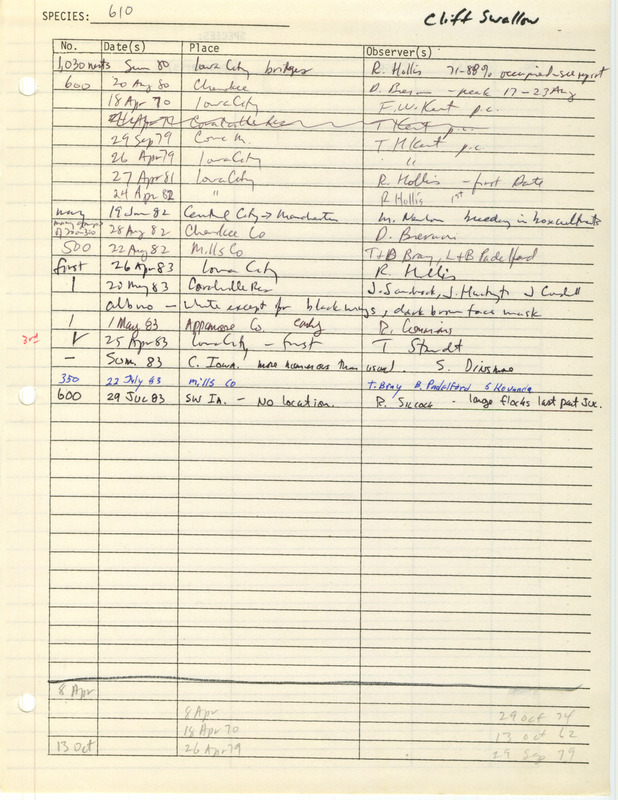 SPECIES: 610 Cliff Swallow
No. Date(s) Place Observer(s)
1,030 nests Sum 80 Iowa City bridges R. Hollis 71-88% occupied-see report
600 20 Aug 80 Cherokee D. Bierman - peak 17-23 Aug
18 Apr 70 Iowa City F.W. Kent p.c.
Coralville Res T Kent p.c.
29 Sep 79 Cone M. T H Kent p.c.
26 Apr 79 Iowa City "
27 Apr 81 Iowa City R. Hollis - first Date
24 Apr 82 " R Hollis 1st
many 19 Jun 82 Central City → Manchester M. Newlon breeding in box culverts
many groups 28 Aug 82 Cherokee Co D. Bierman
500 22 Aug 82 Mills Co T+B Bray, L+B Padelford
first 26 Apr 83 Iowa City R. Hollis
1 20 May 83 Coralville Res
albino - white except for black wings, dark brown face mask
1 1 May 83 Appanoose Co. early R. Cummins
3rd ✓ 25 Apr 83 Iowa City - first T Staudt
- Sum. 83 C. Iowa. more numerous than usual. S. Dinsmore
350 22 July 83 Mills Co T. Bray B. Padelford S Kovanda
600 29 Jul 83 SW IA. - No location. R. Silcock - large flocks last part Jul.
8 Apr
8 Apr 29 Oct 74
18 Apr 70 13 Oct 62
13 Oct 26 Apr 79 29 Sep 79